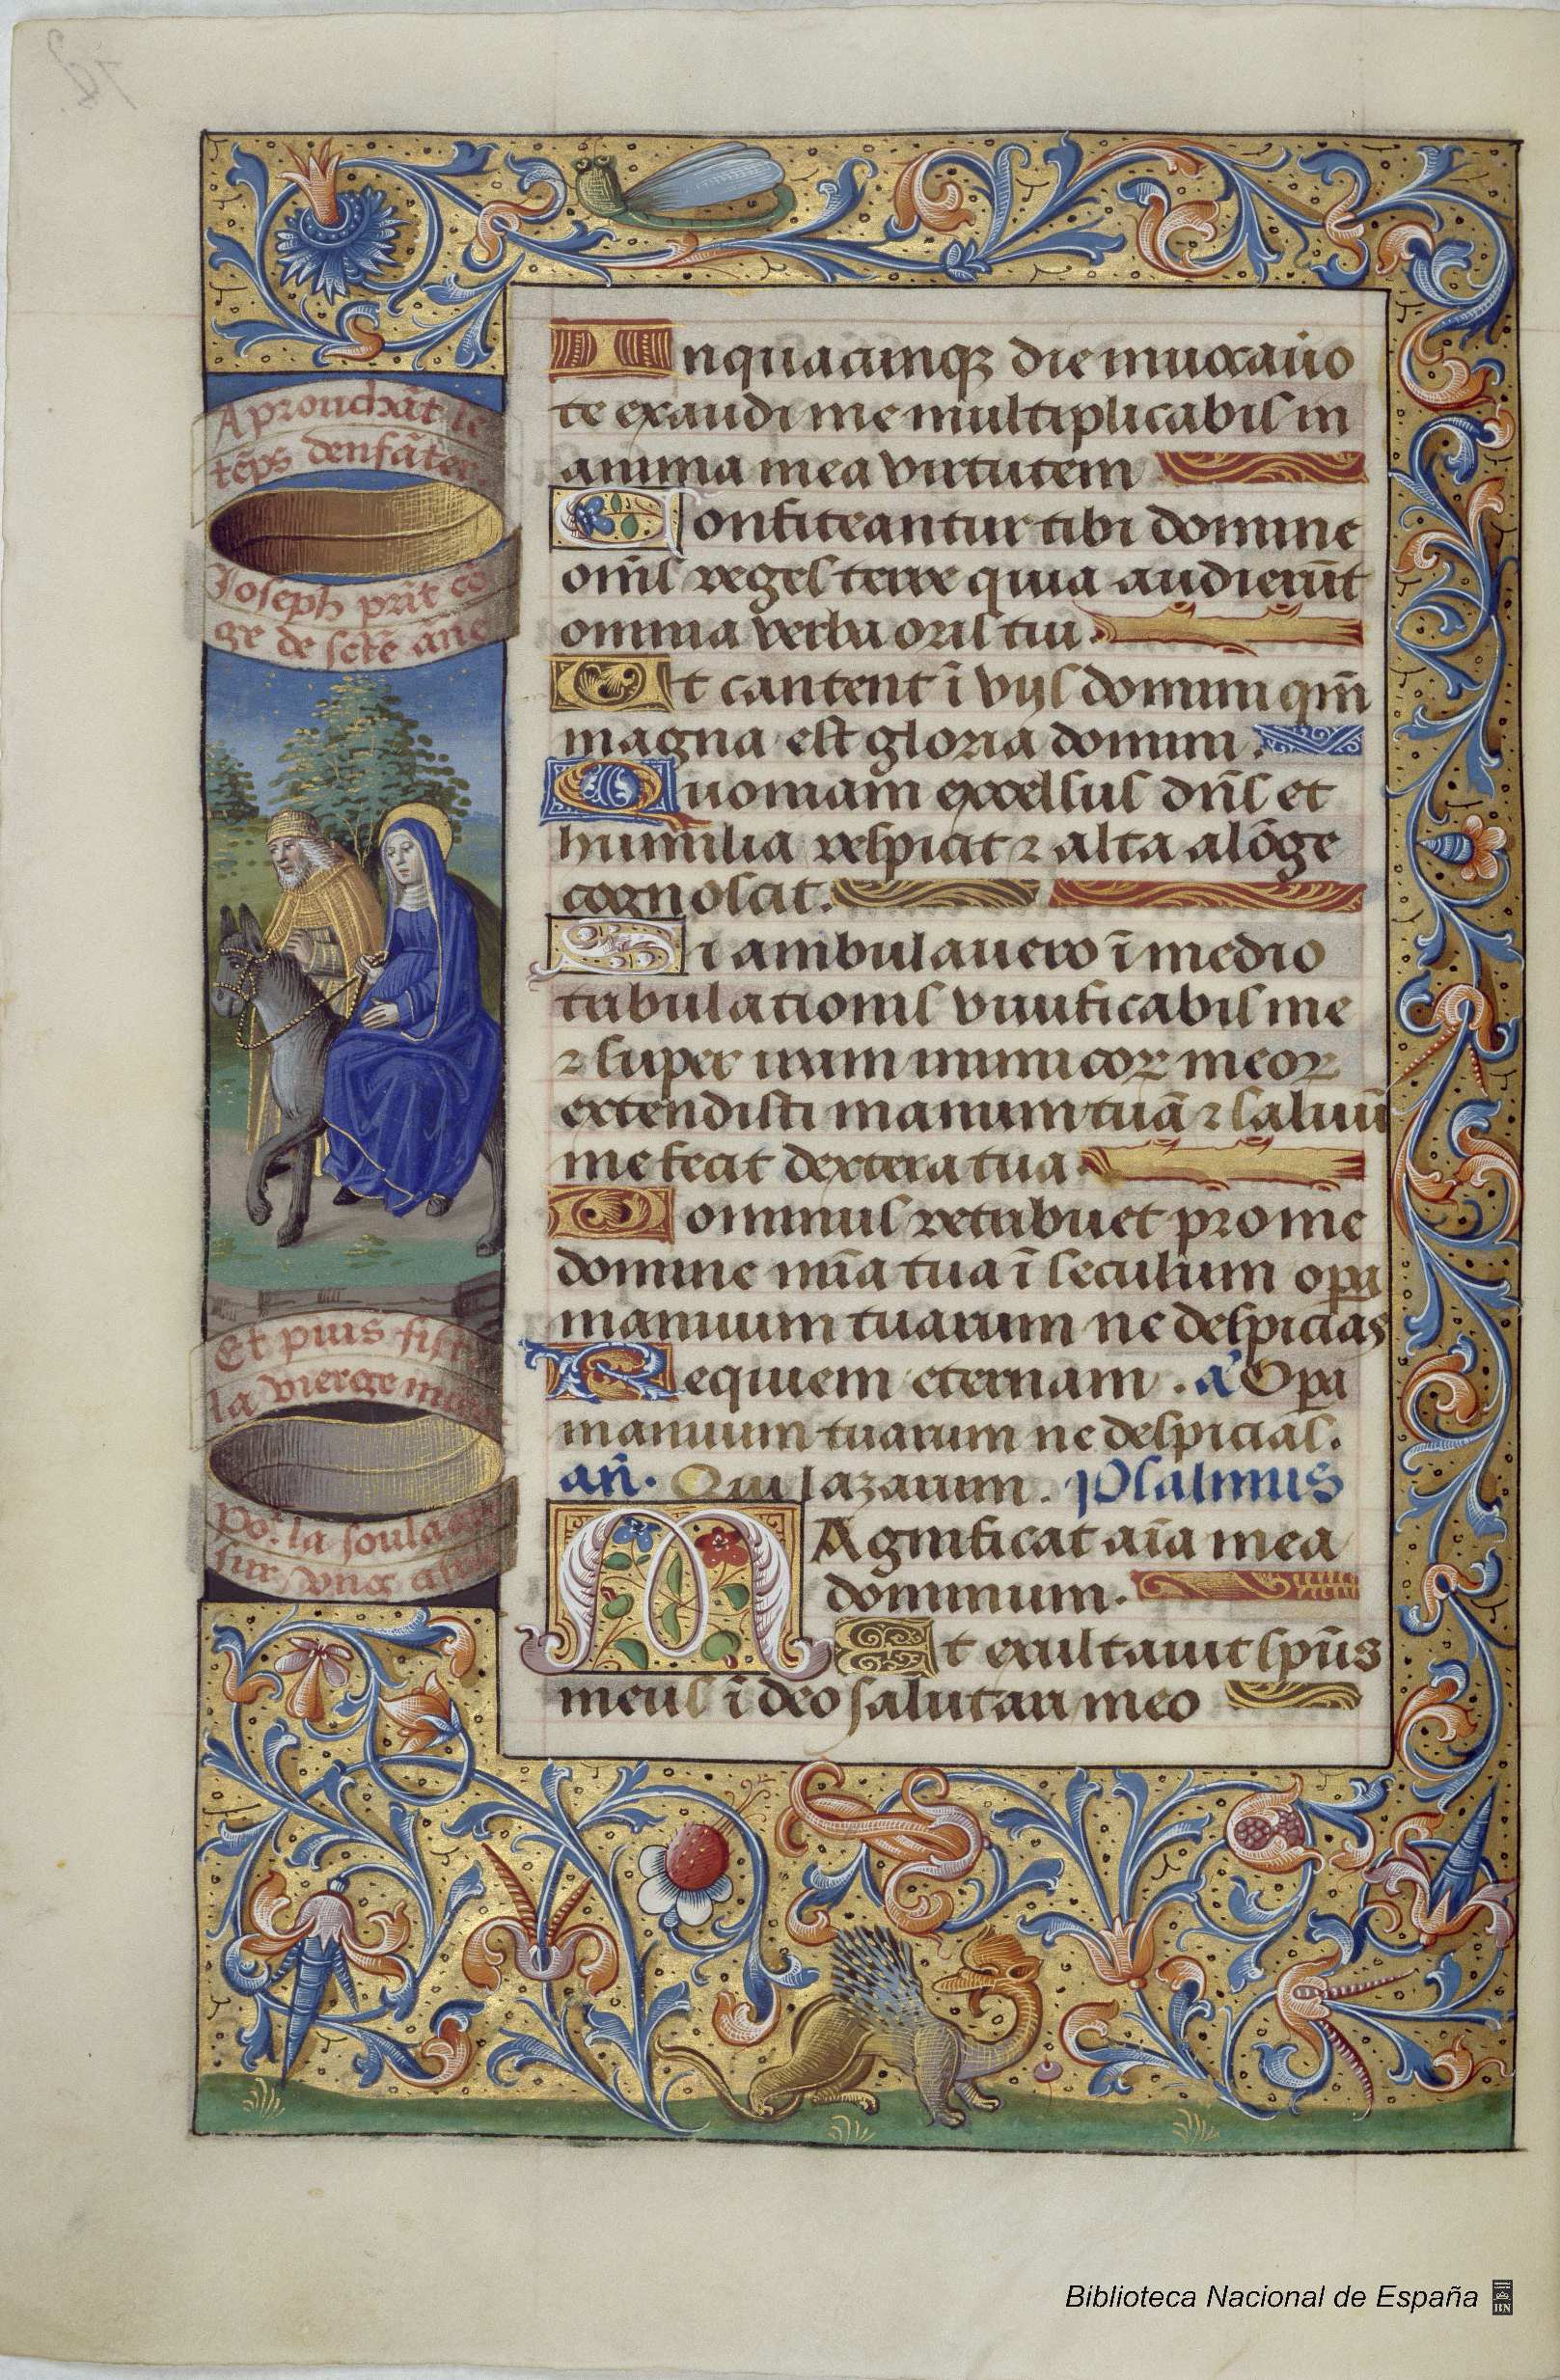 Aprouchãt le
tẽps denfãter
Ioseph prĩt cõ
ge de scte ãne
Et puis fist
la vierge
po.r la soula
sur vne
In quacunqȝ die inuocauero
te exaudi me multiplicabis in
anima mea virtutem
Confiteantur tibi domine
oms̃ reges terre quia audierũt
omnia verba oris tui.
Et cantent ĩ vijs domini qm̃
magna est gloria domini.
Quoniam excelsus dns̃ et
humilia respicit ⁊ alta alõge
cognoscit.
Si ambulauero ĩ medio
tribulationis viuificabis me
⁊ super iram inimicoꝝ meoꝝ
extendisti manum tuã ⁊ saluũ
me fecit dextera tua.
Dominus retribuet pro me
domine mĩa tua ĩ seculum opa
manuum tuarum ne despicias
Requiem eternam . a' Opa
manuum tuarum ne despicias.
añ. Qui lazarum. Psalmus
MAgnificat aĩa mea
dominum.
Et exultauit spũs
meus ĩ deo salutari meo
Biblioteca Nacional de España
BN